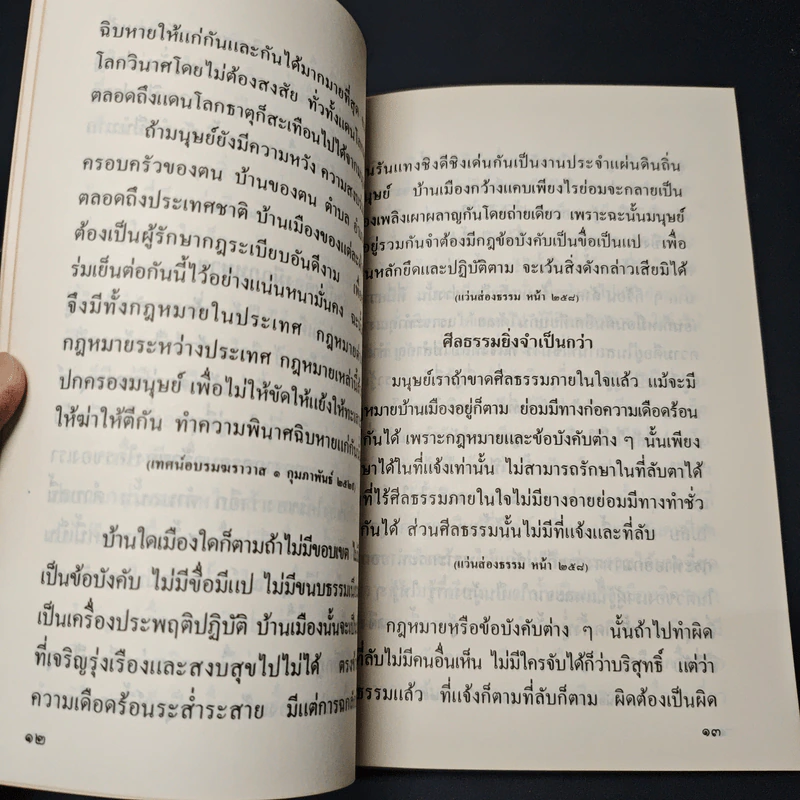 ฉิบหายให้แก่กันและกันได้มากมายที่สุด
โลกวินาศโดยไม่ต้องสงสัย ทั่วทั้งแดนโลก
ตลอดถึงแดนโลกธาตุก็สะเทือนไปได้จาก
ถ้ามนุษย์ยังมีความหวัง
ครอบครัวของตน บ้านของตน ตำบล
ตลอดถึงประเทศชาติ บ้านเมืองของแต่ละ
ต้องเป็นผู้รักษากฎระเบียบอันดีงาม
ร่มเย็นต่อกันนี้ไว้อย่างแน่นหนามั่นคง
จึงมีทั้งกฎหมายในประเทศ กฎหมาย
กฎหมายระหว่างประเทศ กฎหมายเหล่านี้
ปกครองมนุษย์ เพื่อไม่ให้ขัดให้แย้งให้ทะเลาะ
ให้ฆ่าให้ตีกัน ทำความพินาศฉิบหายแก่กัน
(เทศน์อบรมฆราวาส ๑ กุมภาพันธ์
บ้านใดเมืองใดก็ตามถ้าไม่มีขอบเขต
เป็นข้อบังคับ ไม่มีขื่อมีแป ไม่มีขนบธรรมเนียม
เป็นเครื่องประพฤติปฏิบัติ บ้านเมืองนั้นจะเป็น
ที่เจริญรุ่งเรืองและสงบสุขไปไม่ได้
ความเดือดร้อนระส่ำระสาย มีแต่การ
๑๒
นรันแทงชิงดีชิงเด่นกันเป็นงานประจำแผ่นดินถิ่น
นุษย์ บ้านเมืองกว้างแคบเพียงไรย่อมจะกลายเป็น
องเพลิงเผาผลาญกันโดยถ่ายเดียว เพราะฉะนั้นมนุษย์
อยู่รวมกันจำต้องมีกฎข้อบังคับเป็นขื่อเป็นแป เพื่อ
นหลักยึดและปฏิบัติตาม จะเว้นสิ่งดังกล่าวเสียมิได้
(แว่นส่องธรรม หน้า ๒๕๘)
ศีลธรรมยิ่งจำเป็นกว่า
มนุษย์เราถ้าขาดศีลธรรมภายในใจแล้ว แม้จะมี
หมายบ้านเมืองอยู่ก็ตาม ย่อมมีทางก่อความเดือดร้อน
กันได้ เพราะกฎหมายและข้อบังคับต่าง ๆ นั้นเพียง
ษาได้ในที่แจ้งเท่านั้น ไม่สามารถรักษาในที่ลับตาได้
ที่ไร้ศีลธรรมภายในใจไม่มียางอายย่อมมีทางทำชั่ว
กันได้ ส่วนศีลธรรมนั้นไม่มีที่แจ้งและที่ลับ
(แว่นส่องธรรม หน้า ๒๕๘)
กฎหมายหรือข้อบังคับต่าง ๆ นั้นถ้าไปทำผิด
ที่ลับไม่มีคนอื่นเห็น ไม่มีใครจับได้ก็ว่าบริสุทธิ์ แต่ว่า
ธรรมแล้ว ที่แจ้งก็ตามที่ลับก็ตาม ผิดต้องเป็นผิด
๑๓